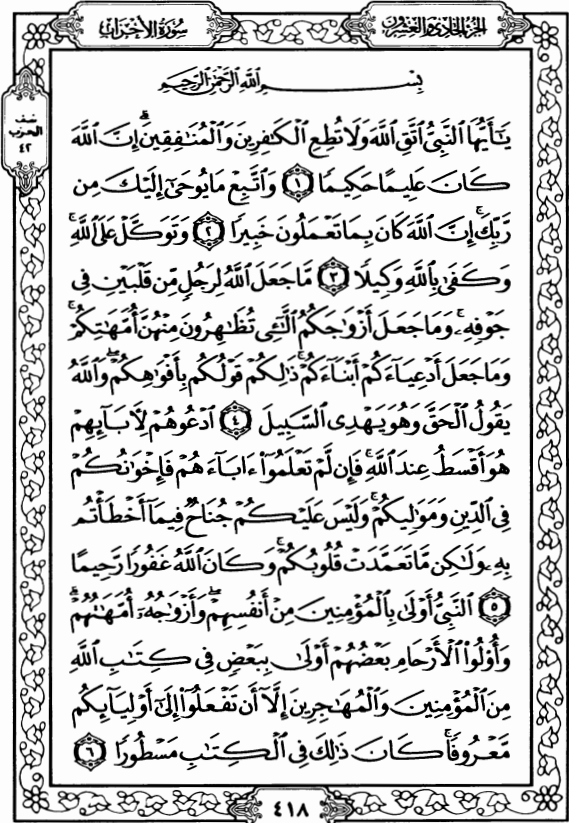 الجزء الحادي والعشرون
سُورَةُ الأَحْزَابِ
نصف
الحزب
٤٢
بِسْمِ اللَّهِ الرَّحْمَٰنِ الرَّحِيمِ
يَٰٓأَيُّهَا ٱلنَّبِىُّ ٱتَّقِ ٱللَّهَ وَلَا تُطِعِ ٱلْكَٰفِرِينَ وَٱلْمُنَٰفِقِينَ ۗ إِنَّ ٱللَّهَ
كَانَ عَلِيمًا حَكِيمًا ١ وَٱتَّبِعْ مَا يُوحَىٰٓ إِلَيْكَ مِن
رَّبِّكَ ۚ إِنَّ ٱللَّهَ كَانَ بِمَا تَعْمَلُونَ خَبِيرًا ٢ وَتَوَكَّلْ عَلَى ٱللَّهِ ۚ
وَكَفَىٰ بِٱللَّهِ وَكِيلًا ٣ مَّا جَعَلَ ٱللَّهُ لِرَجُلٍ مِّن قَلْبَيْنِ فِى
جَوْفِهِۦ ۚ وَمَا جَعَلَ أَزْوَٰجَكُمُ ٱلَّٰٓـِٔى تُظَٰهِرُونَ مِنْهُنَّ أُمَّهَٰتِكُمْ ۚ
وَمَا جَعَلَ أَدْعِيَآءَكُمْ أَبْنَآءَكُمْ ۚ ذَٰلِكُمْ قَوْلُكُم بِأَفْوَٰهِكُمْ ۖ وَٱللَّهُ
يَقُولُ ٱلْحَقَّ وَهُوَ يَهْدِى ٱلسَّبِيلَ ٤ ٱدْعُوهُمْ لِءَابَآئِهِمْ
هُوَ أَقْسَطُ عِندَ ٱللَّهِ ۚ فَإِن لَّمْ تَعْلَمُوٓا۟ ءَابَآءَهُمْ فَإِخْوَٰنُكُمْ
فِى ٱلدِّينِ وَمَوَٰلِيكُمْ ۚ وَلَيْسَ عَلَيْكُمْ جُنَاحٌ فِيمَآ أَخْطَأْتُم
بِهِۦ وَلَٰكِن مَّا تَعَمَّدَتْ قُلُوبُكُمْ ۚ وَكَانَ ٱللَّهُ غَفُورًا رَّحِيمًا
٥ ٱلنَّبِىُّ أَوْلَىٰ بِٱلْمُؤْمِنِينَ مِنْ أَنفُسِهِمْ ۖ وَأَزْوَٰجُهُۥٓ أُمَّهَٰتُهُمْ ۗ
وَأُو۟لُوا۟ ٱلْأَرْحَامِ بَعْضُهُمْ أَوْلَىٰ بِبَعْضٍ فِى كِتَٰبِ ٱللَّهِ
مِنَ ٱلْمُؤْمِنِينَ وَٱلْمُهَٰجِرِينَ إِلَّآ أَن تَفْعَلُوٓا۟ إِلَىٰٓ أَوْلِيَآئِكُم
مَّعْرُوفًا ۚ كَانَ ذَٰلِكَ فِى ٱلْكِتَٰبِ مَسْطُورًا ٦
٤١٨